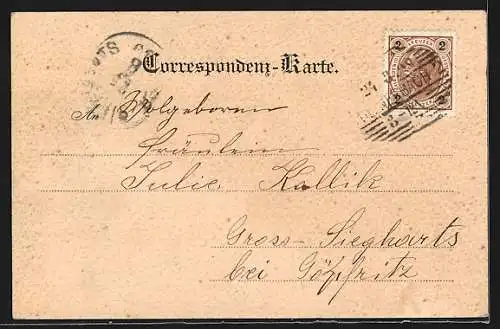 Correspondenz-Karte.
An Wolgeboren
Fräulein
Julie Kallik
Gross-Siegharts
bei Göpfritz
2 KREUZER 2